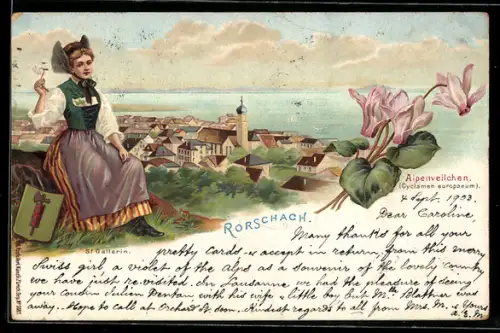 Alpenveilchen.
(Cyclamen europaeum).
RORSCHACH.
St Gallerin.
4 Sept. 1903.
Dear Caroline,
Many thanks for all your
pretty cards & accept in return, from this merry
Swiss girl, a violet of the alps as a souvenir of the lovely country
we have just re-visited. In Lausanne we had the pleasure of seeing
your cousin Julien Dentan with his wife & little boy but M. Blattner was
away. Hope to call at Orchard St soon. Kindest regards to all from Mrs. M. & Yours